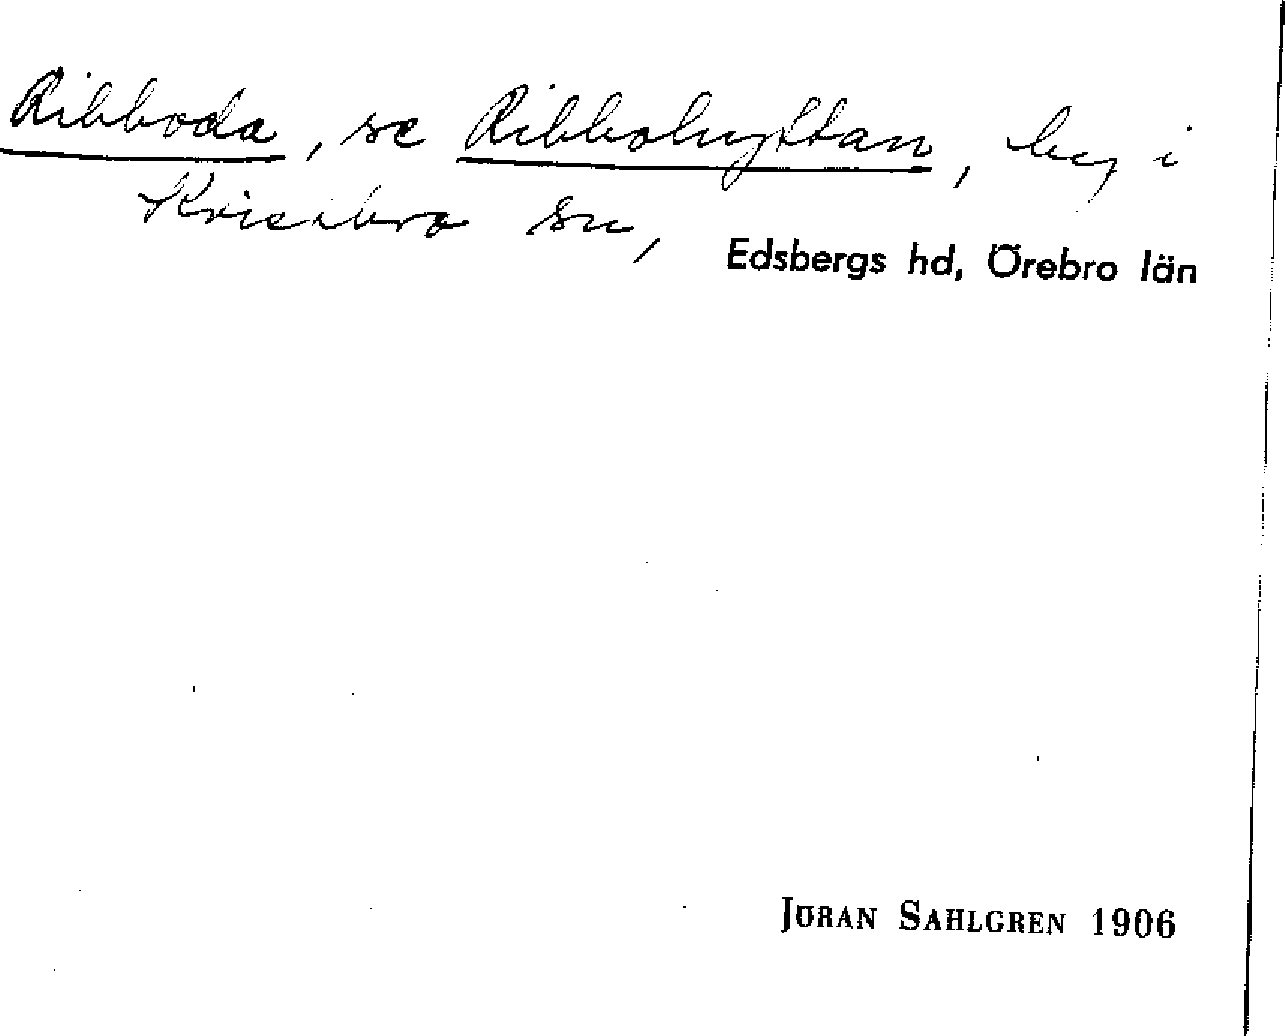 Ribboda, se Ribbohyttan, by i
Kvistbro sn,
Edsbergs hd, Örebro län
JÖRAN SAHLGREN 1906